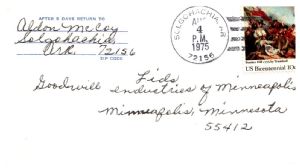 AFTER 5 DAYS RETURN TO
Aldon McCoy
Solgohachia
Ark. 72156
ZIP CODE
SOLGOHACHIA, AR
AUG
4
P.M.
1975
72156
US Bicentennial 10c
Fids
Goodwill endustries of Minneapolis
Minneapolis, Minnesota
55412